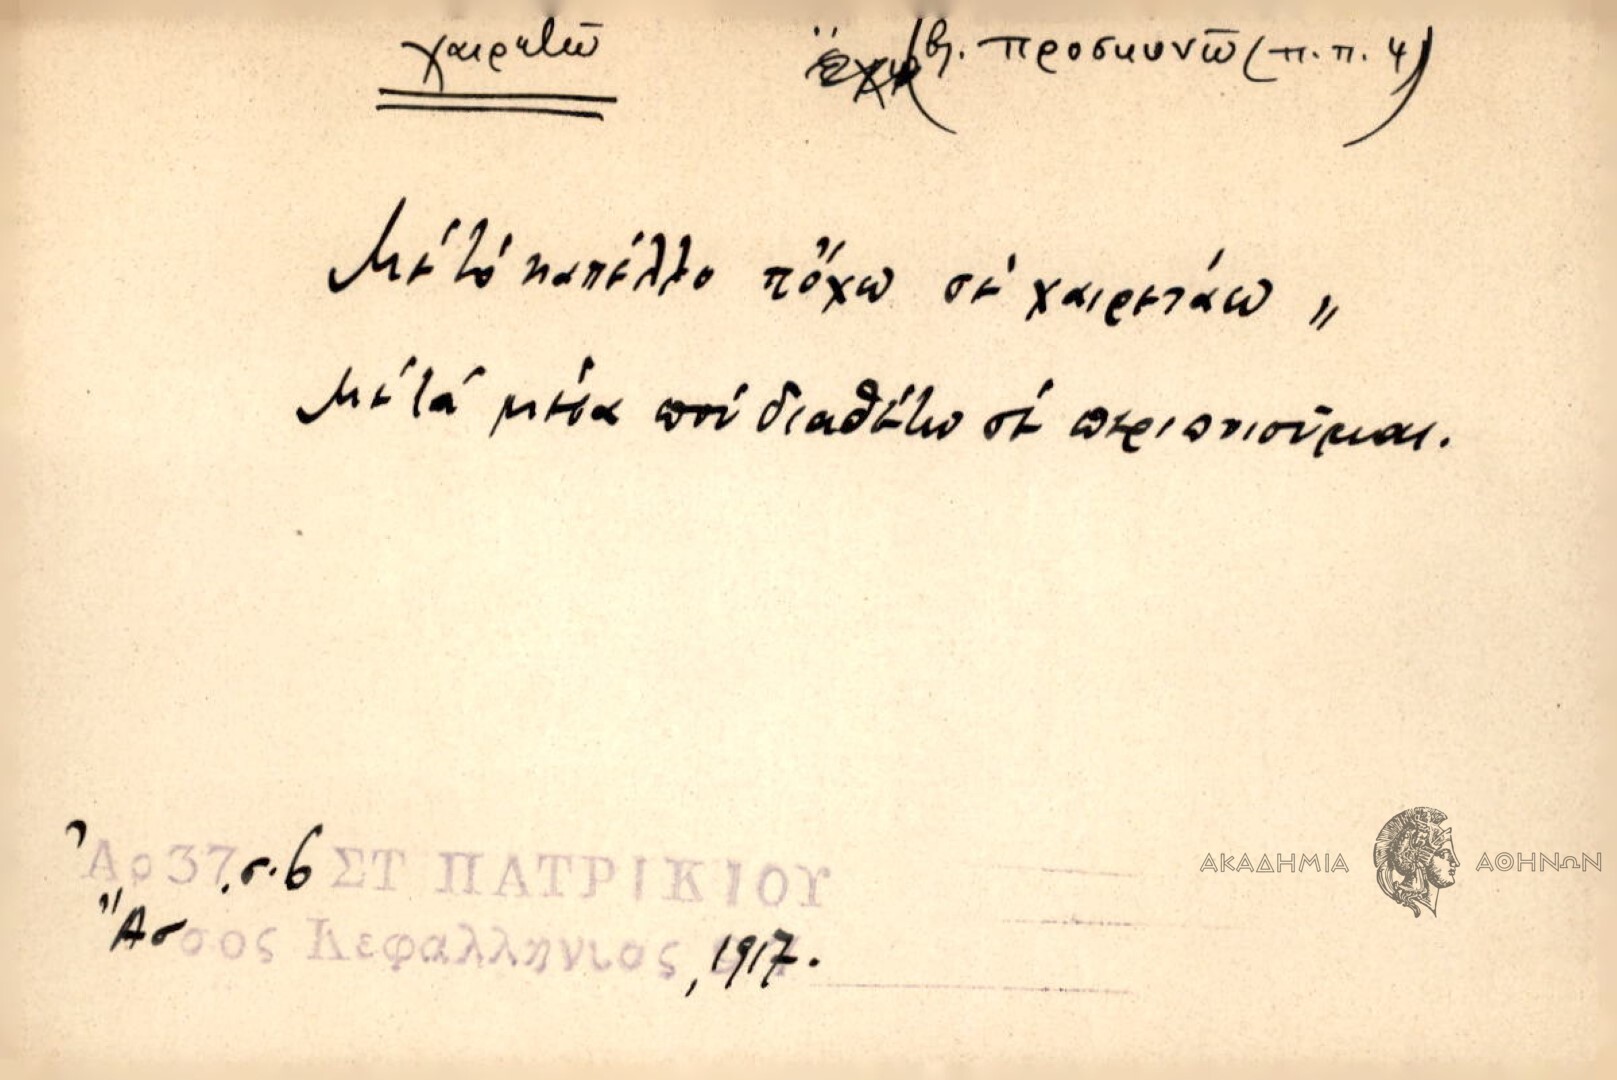 χαιρετῶ (βλ. προσκυνῶ (π.π. 4)
Μέ τό καπέλλο πὄχω σέ χαιρετάω "
Μέ τά μέσα πού διαθέτω σέ περιποιοῦμαι.
Ἀρ 37.σ.6 ΣΤ ΠΑΤΡΙΚΙΟΥ
Ἄσσος Κεφαλληνιας, 1917.
ΑΚΑΔΗΜΙΑ ΑΘΗΝΩΝ